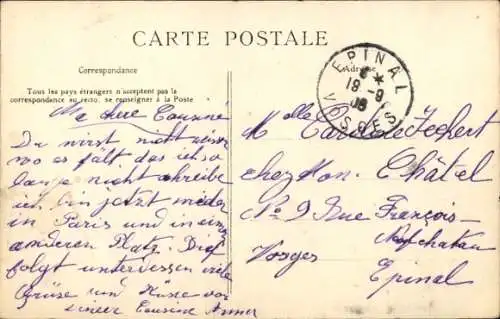 CARTE POSTALE
Correspondance
Adresse
Tous les pays étrangers n'acceptent pas la
correspondance au recto, se renseigner à la Poste
EPINAL
19-9
08
VOSGES
Ma chere Cousine
Du wirst nicht wissen
wo es fält das ich so
lange nicht schreibe
ich bin jetzt wieder
in Paris und in einem
anderen Platz. Brief
folgt unterdessen viele
Grüse und Küsse von
deiner Cousine
Mlle
chez Mon. Châtel
No 9 Rue François-
Neufchateau
Epinal
Vosges